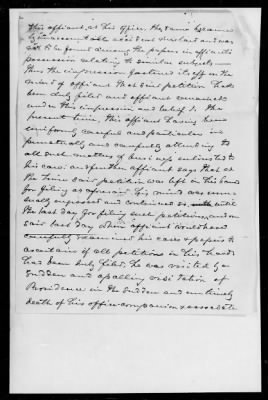 this affiant, at his office, the same became
by some accountable accident mislaid and was
not to be found among the papers in affiants
possession relating to similar subjects —
thus the impression fastened itself on the
mind of affiant that said petition had
been duly filed and affiant remained
under this impression and belief to the
present time, this affiant having been
uniformly careful and particular in
punctually and carefully attending to
all such matters of business entrusted to
his care: and further affiant says that at
the time said petition was left in his hand
for filing as aforesaid his mind was unu
sually engrossed and continued so until
the last day for filing such petitions, and on
said last day when affiant would have
carefully examined his cases & papers to
ascertain if all petitions in his hands
had been duly filed, he was visited by a
sudden and appalling visitation of
Providence in the sudden and untimely
death of his office companion & associate